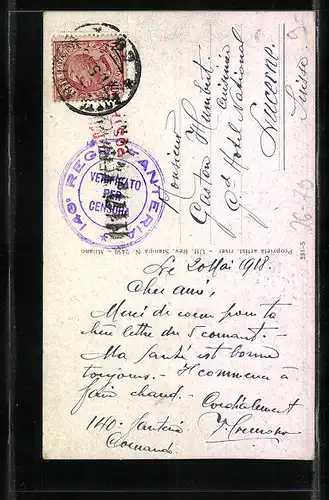 149º REGG. FANTERIA
VERIFICATO
PER
CENSURA
Monsieur
Gaston Humbert
Cuisinier
Gd Hotel National
Lucerne.
Suisse
Proprietà artist. riser. - Uff. Rev. Stampa, N. 2459 - Milano
231-5
Le 20 Mai 1918.
Cher ami,
Merci de cœur pour ta
chère lettre du 5 courant -
Ma santé est bonne
toujours. - Il commence à
faire chaud. - Cordialement
140º Fanteria
Comando